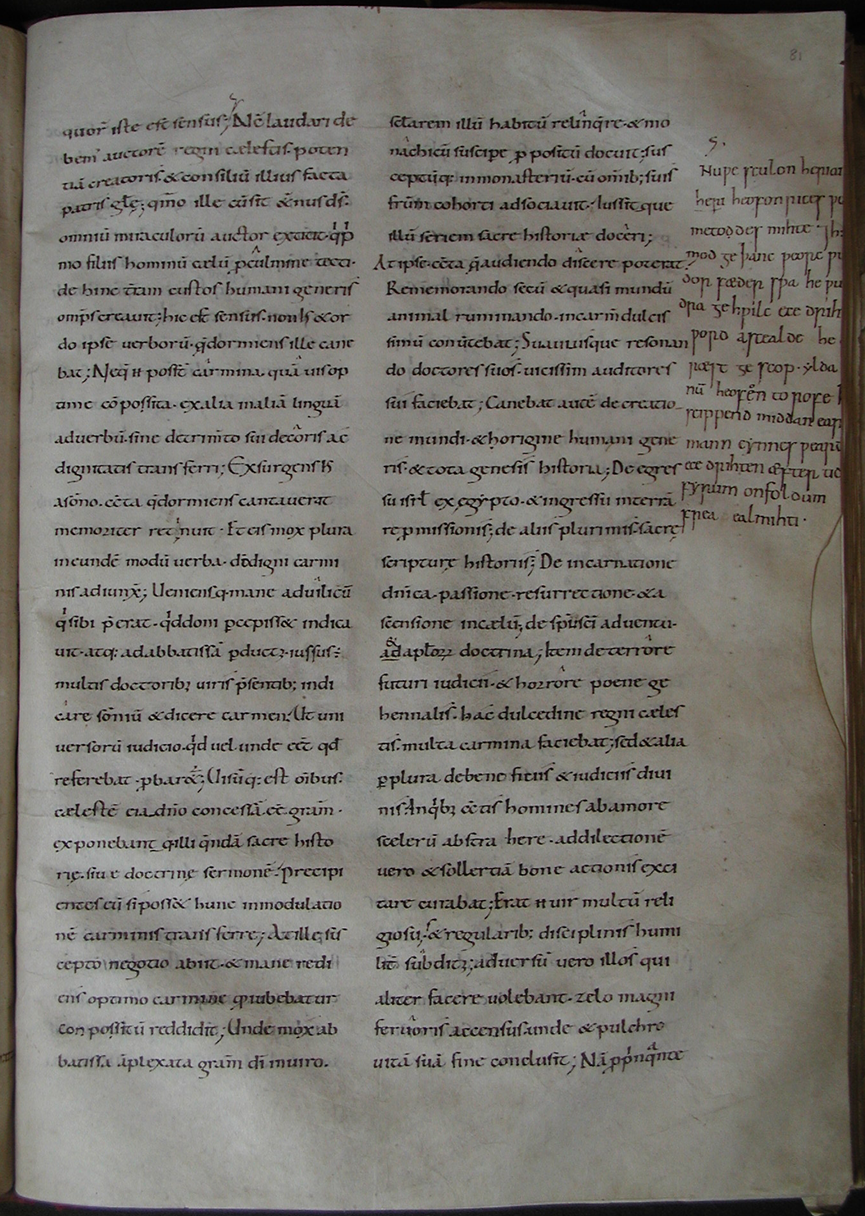 81
quoꝝ iste est sensus; Nc̄ laudari de
bem᷒ auctorē regni cælestis poten
tiā creatoris & consiliū illius facta
patris glę; qm̄o ille cū sit &nus ds̄.
omniū miraculorū auctor extitit. q̇ p̄
mo filiis hominū cælū ꝑ culmine tecti.
de hinc tr̄am custos humani generis
omp̄s creauit; hic est sensus. non is & or
do ipse uerborū. q̄ dormiens ille cane
bat; Neq; n̄ posst̄ carmina. quā uis op
time cōposita. ex alia in aliā linguā
ad uerbū. sine detrim̄to sui decoris ac
dignitatis transferri; Exsurgens
a sōno. cc̄ta q̄ dormiens cantauerat
memoriter retinuit. Et eis mox plura
in eundē modū uerba. dō digni carmi
nis adiunx̄; Ueniensq; mane ad uilicū
q̇ sibi p̄erat. q̇d doni ꝑcepiss& indica
uit. atq; ad abbatissā ꝑduct᷒. iussus÷
multis doctorib; uiris p̄sentib; indi
care sōniū & dicere carmen. Ut uni
uersorū iudicio. q̇d uel unde ecc̄t qd̄
referebat. ꝓbar&; Uisūq; est oīb;
cælestē ei a dn̄o concessā. cc̄ grām.
exponebant q; illi q̄ndā sacrę histo
rię. siue doctrine sermonē. precipi
entes eū si poss& hunc in modulatio
nē carminis transferre; At ille sus
cepto negotio abiit. & mane redi
ens optimo carmine q̇ iubebatur
conpositū reddidit; Unde mox ab
batissa āplexata grām di in uiro.
sclarem illū habitū relinq̄re. & mo
nachicū suscipe ꝓpositū docuit; sus
ceptūq; in monasteriū. cū om̄ib; suis
frūm cohorti adsociauit. Iussitque
illū seriem sacre historiæ doceri;
At ipse. cc̄ta q̄ audiendo discere poterat.
Rememorando secū & quasi mundū
animal ruminando. in carm̄ dulcis
simū conūtebat; Suauiusque resonan
do doctores suos. uicissim auditores
sui faciebat; Canebat autē de creatio
ne mundi. & horigine humani gene
ris. & tota genesis historia; De egres
su isrl̄ ex ęgypto. & ingressu in terrā
repmissionis; de aliis plurimis. sacrę
scripturę historiis; De incarnatione
dn̄ica. passione. resurrectione. & a
scensione in cælū; de sp̄usc̄i aduentu.
& aplorꝝ doctrina; Item de terrore
futuri iudicii. & horrore poene ge
hennalis. hac̄ dulcedine regni cæles
tis. multa carmina faciebat; sed & alia
ꝑplura de bene ficiis & iudiciis diui
nis. In q̇b; cc̄tis homines ab amore
scelerū abstra here. ad dilectionē
uero & sollertiā bone actionis exci
tare curabat; Erat n̄ uir multū reli
giosus. & regularib; disciplinis humi
lit̄ subdit᷒; aduersū uero illos qui
aliter facere uolebant. zelo magni
feruoris accensus. unde & pulchro
uitā suā fine conclusit; Nā ꝓpinq̄nte
Nuꝑe sculon herian
heri heofon rices
metoddes mihte.
mod geþanc ƿeorc
dor fæder sƿa he
dra gehƿilc ece drih
ƿord astealde he
ærst ge scop. ylda
heofen to rofe
scippend middan ear
mann cynnes
ece drihten æfter
fyrum on foldum
frea ealmihti.